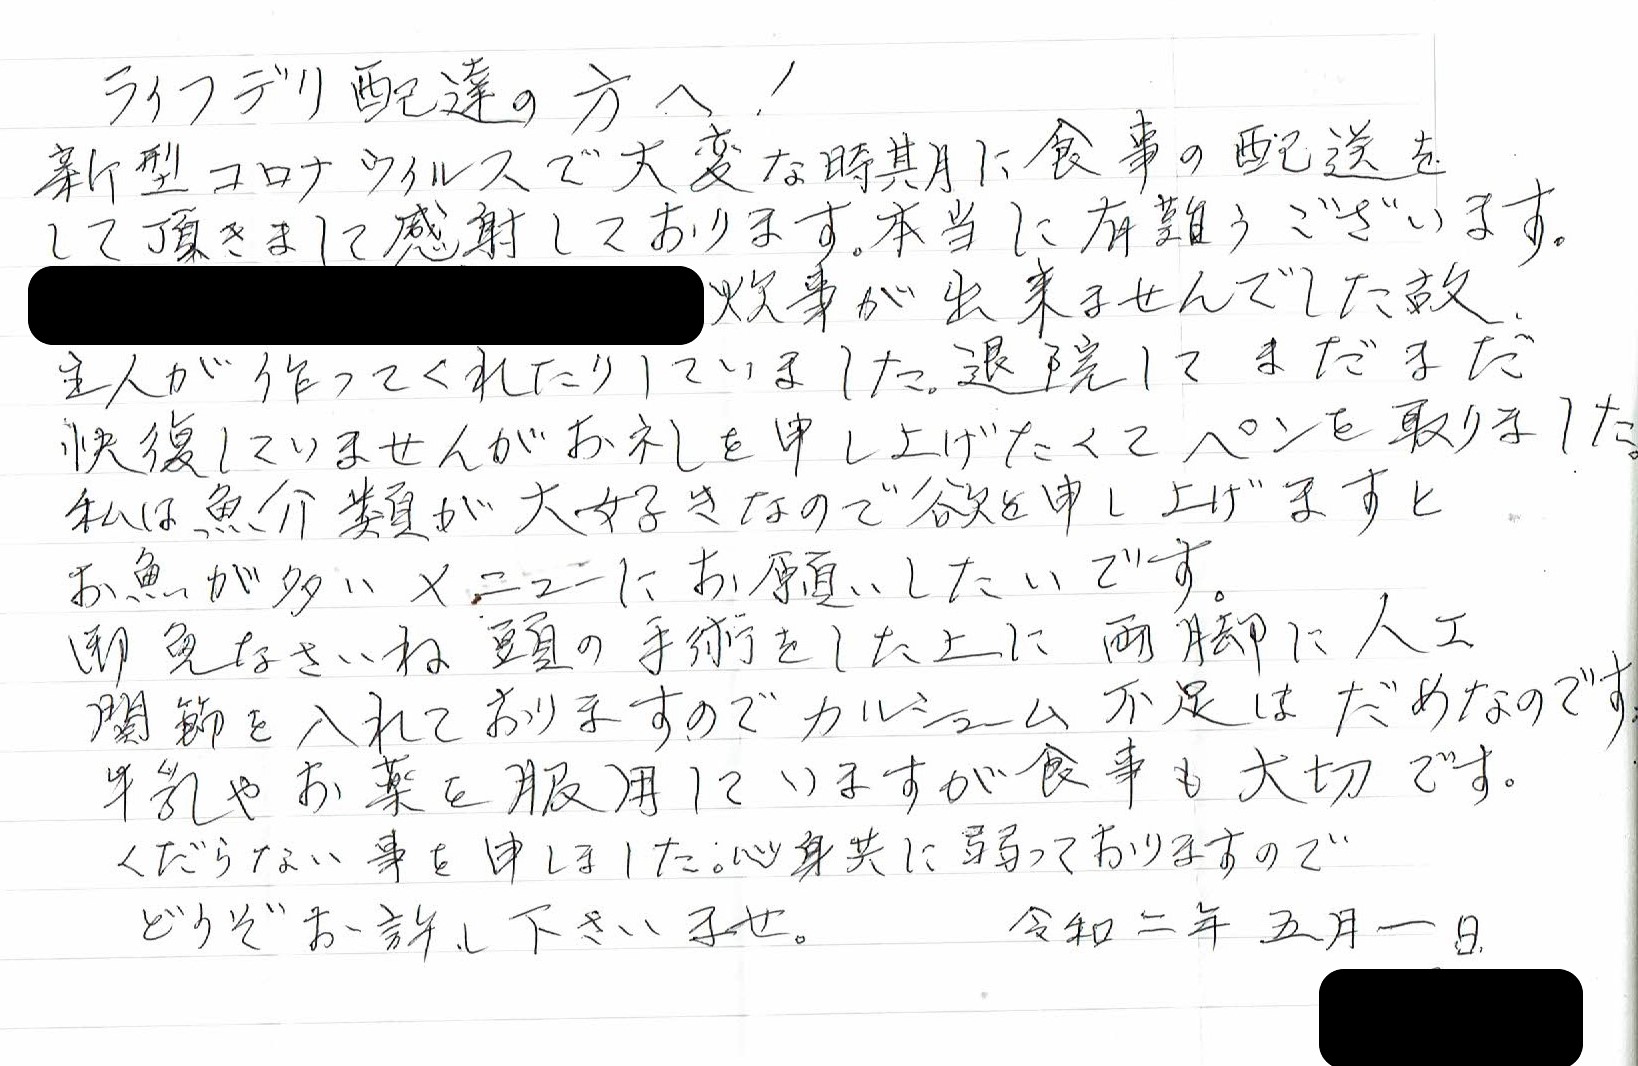 ライフデリ配達の方へ！
新型コロナウィルスで大変な時期に食事の配送を
して頂きまして感射しております。本当に有難うございます。
炊事が出来ませんでした故、
主人が作ってくれたりしていました。退院してまだまだ
快復していませんがお礼を申し上げたくてペンを取りました。
私は魚介類が大好きなので欲を申し上げますと
お魚が多いメニューにお願いしたいです。
御免なさいね頭の手術をした上に両脚に人工
関節を入れておりますのでカルシューム不足はだめなのです。
牛乳やお薬を服用していますが食事も大切です。
くだらない事を申しました。心身共に弱っておりますので
どうぞお許し下さいませ。 令和二年五月一日